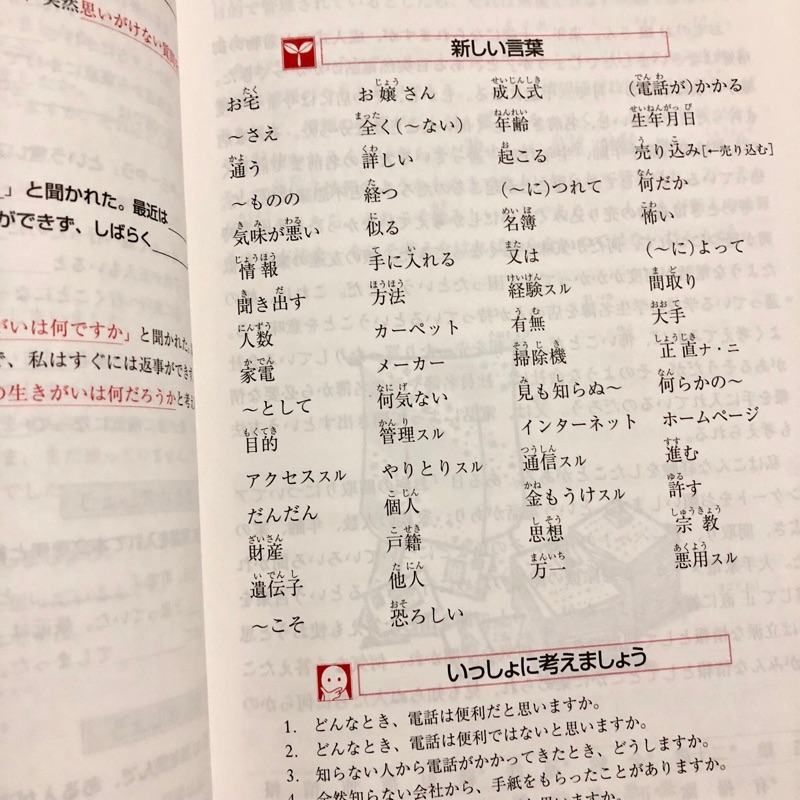 突然思いがけない質問
」と聞かれた。最近は
ができず、しばらく
がいは何ですか」と聞かれた。
で、私はすぐには返事ができず
の生きがいは何だろうかと考
新しい言葉
お宅 お嬢さん 成人式 (電話が)かかる
～さえ 全く(～ない) 年齢 生年月日
通う 詳しい 起こる 売り込み[←売り込む]
～ものの 経つ (～に)つれて 何だか
気味が悪い 似る 名簿 怖い
情報 手に入れる 又は (～に)よって
聞き出す 方法 経験スル 間取り
人数 カーペット 有無 大手
家電 メーカー 掃除機 正直ナ・ニ
～として 何気ない 見も知らぬ～ 何らかの～
目的 管理スル インターネット ホームページ
アクセススル やりとりスル 通信スル 進む
だんだん 個人 金もうけスル 許す
財産 戸籍 思想 宗教
遺伝子 他人 万一 悪用スル
～こそ 恐ろしい
いっしょに考えましょう
1. どんなとき、電話は便利だと思いますか。
2. どんなとき、電話は便利ではないと思いますか。
3. 知らない人から電話がかかってきたとき、どうしますか。
4. 全然知らない会社から、手紙をもらったことがありますか。